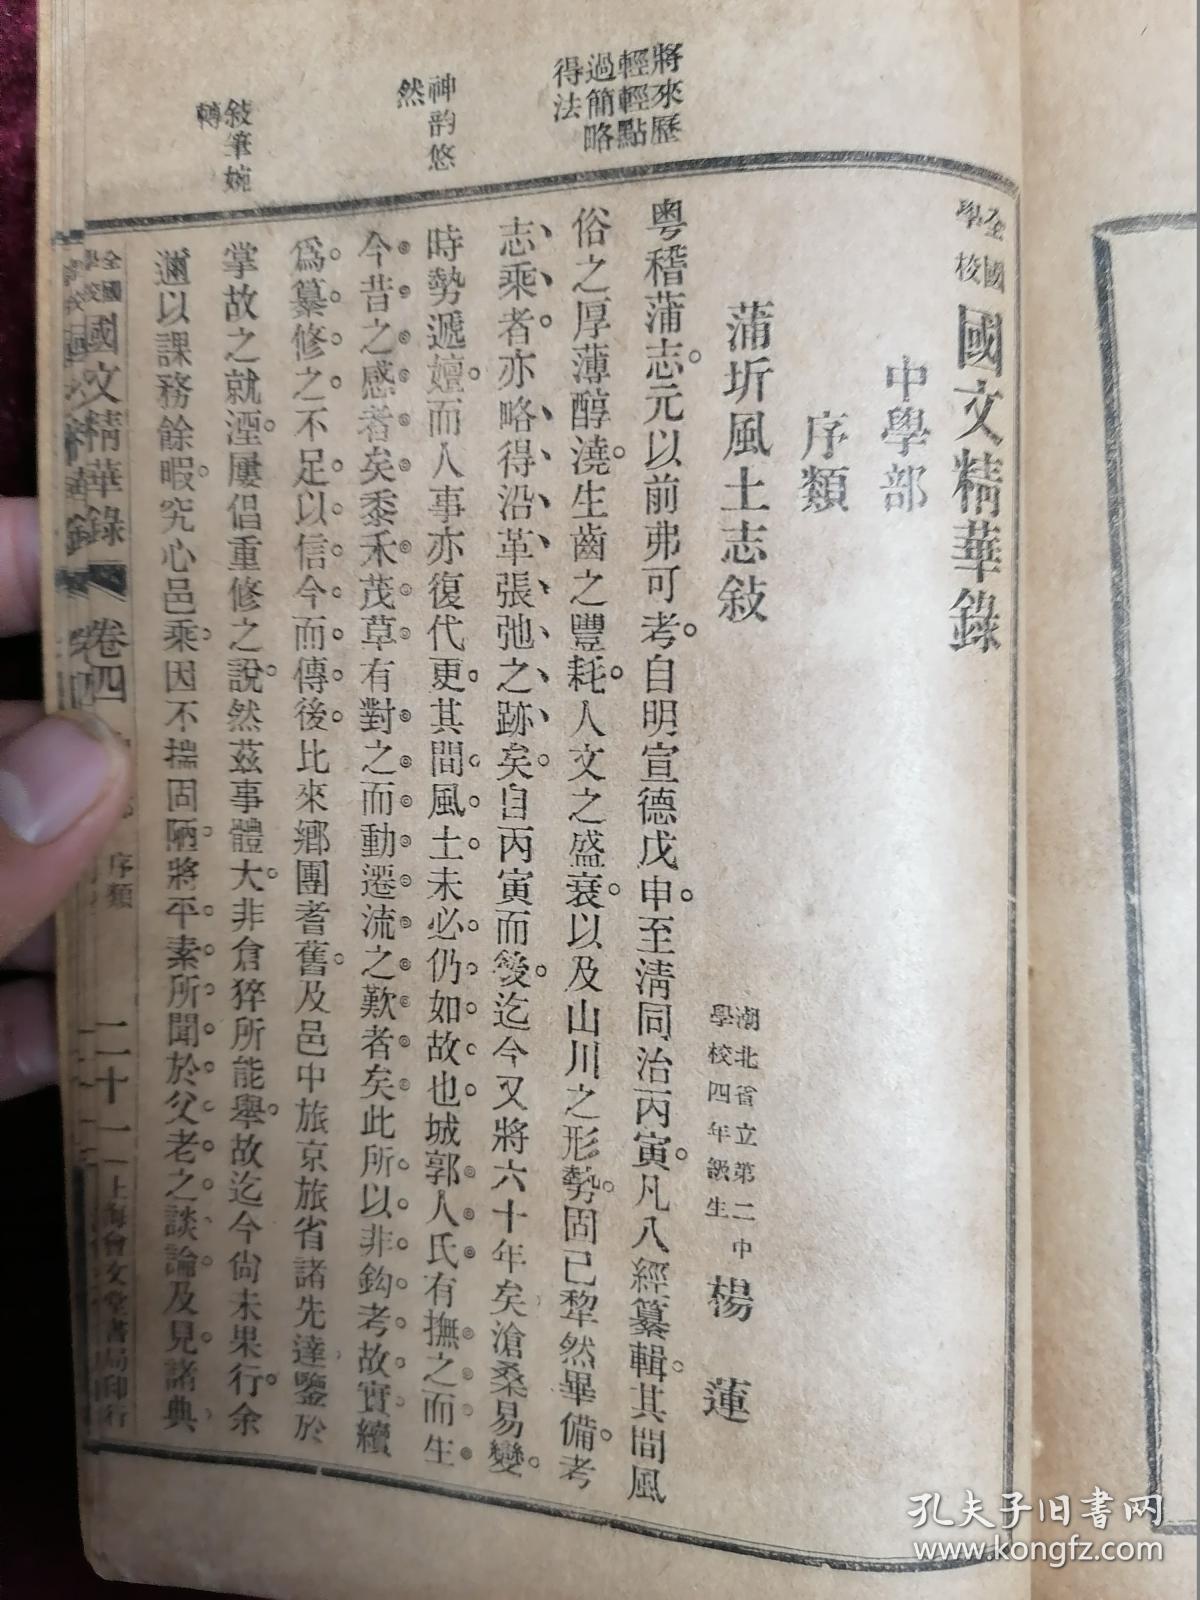 將來歷
輕輕點
過簡略
得法
神韵悠
然
敍筆婉
轉
全國學校國文精華錄
中學部
序類
蒲圻風土志敍
湖北省立第二中
學校四年級生
楊蓮
粵稽蒲志。元以前弗可考。自明宣德戊申。至淸同治丙寅。凡八經纂輯。其間風
俗之厚薄醇澆。生齒之豐耗。人文之盛衰。以及山川之形勢。固已犂然畢備。考
志乘者。亦略得沿革張弛之跡矣。自丙寅而後。迄今又將六十年矣。滄桑易變。
時勢遞嬗。而人事亦復代更。其間風土。未必仍如故也。城郭人民。有撫之而生
今昔之感者矣。黍禾茂草。有對之而動遷流之歎者矣。此所以非鈎考故實。續
爲纂修之。不足以信今而傳後。比來鄉團耆舊。及邑中旅京旅省諸先達。鑒於
掌故之就湮。屢倡重修之說。然茲事體大。非倉猝所能舉。故迄今尙未果行。余
邇以課務餘暇。究心邑乘。因不揣固陋。將平素所聞於父老之談論。及見諸典
全國學校國文精華錄
卷四
序類
二十一
上海會文堂書局印行
孔夫子旧书网
www.kongfz.com